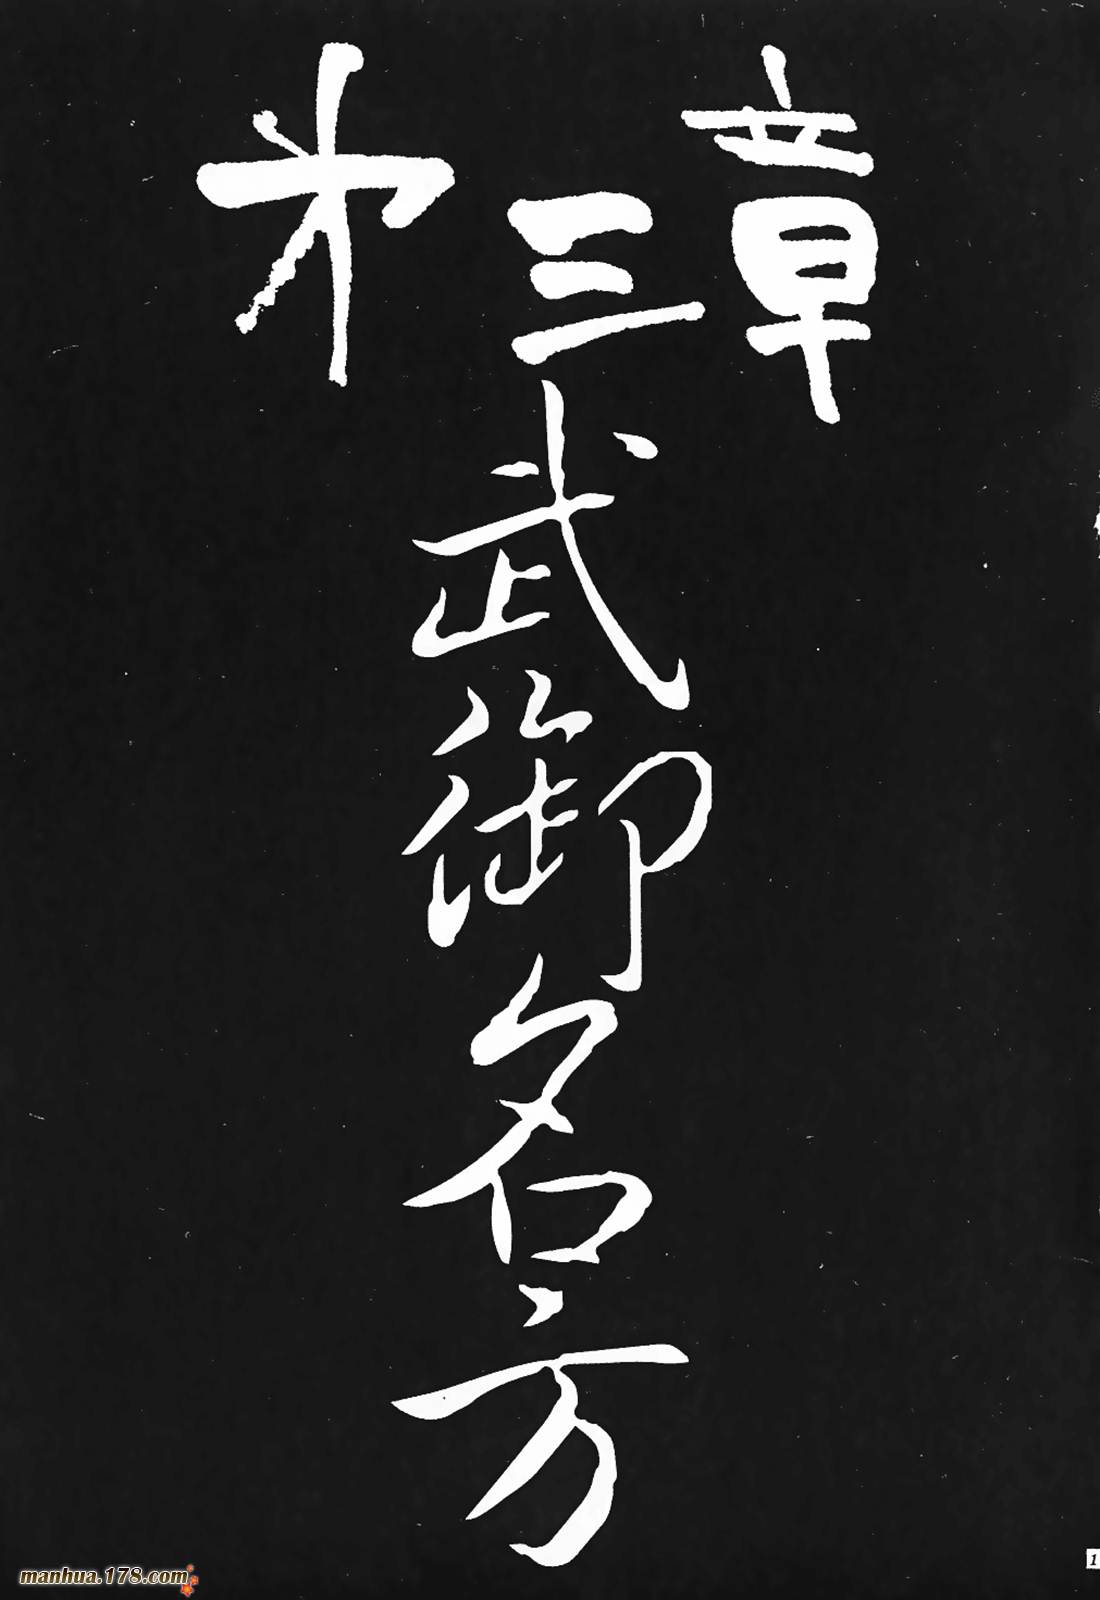 第三章
武御名方
manhua.178.com
1